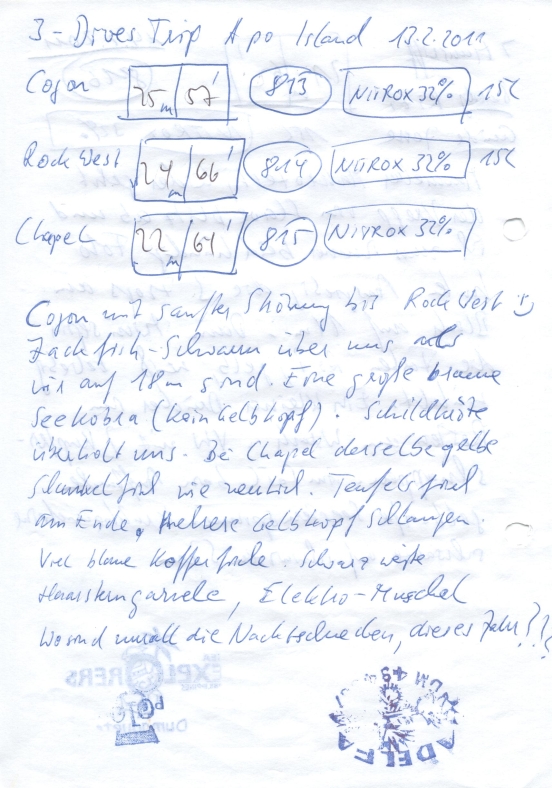 3-Dives Trip Apo Island 13.2.2011
Cogon 25m 57' 813 NITROX 32% 15L
Rock West 24m 66' 814 NITROX 32% 15L
Chapel 22m 61' 815 NITROX 32%
Cogon mit sanfter Strömung bis Rock West :)
Jackfish-Schwarm über uns als
wir auf 18m sind. Eine große braune
Seekobra (kein Gelbkopf). Schildkröte
überholt uns. Bei Chapel derselbe gelbe
Schaukelfisch wie neulich. Teufelsfisch
am Ende, Mehrere Gelbkopf Schlangen.
Viel blaue Kofferfische. Schwarz weiße
Haarsterngarnele, Elektro-Muschel
Wo sind all die Nacktschnecken, dieses Jahr???
EXPLORERS
ADELFA